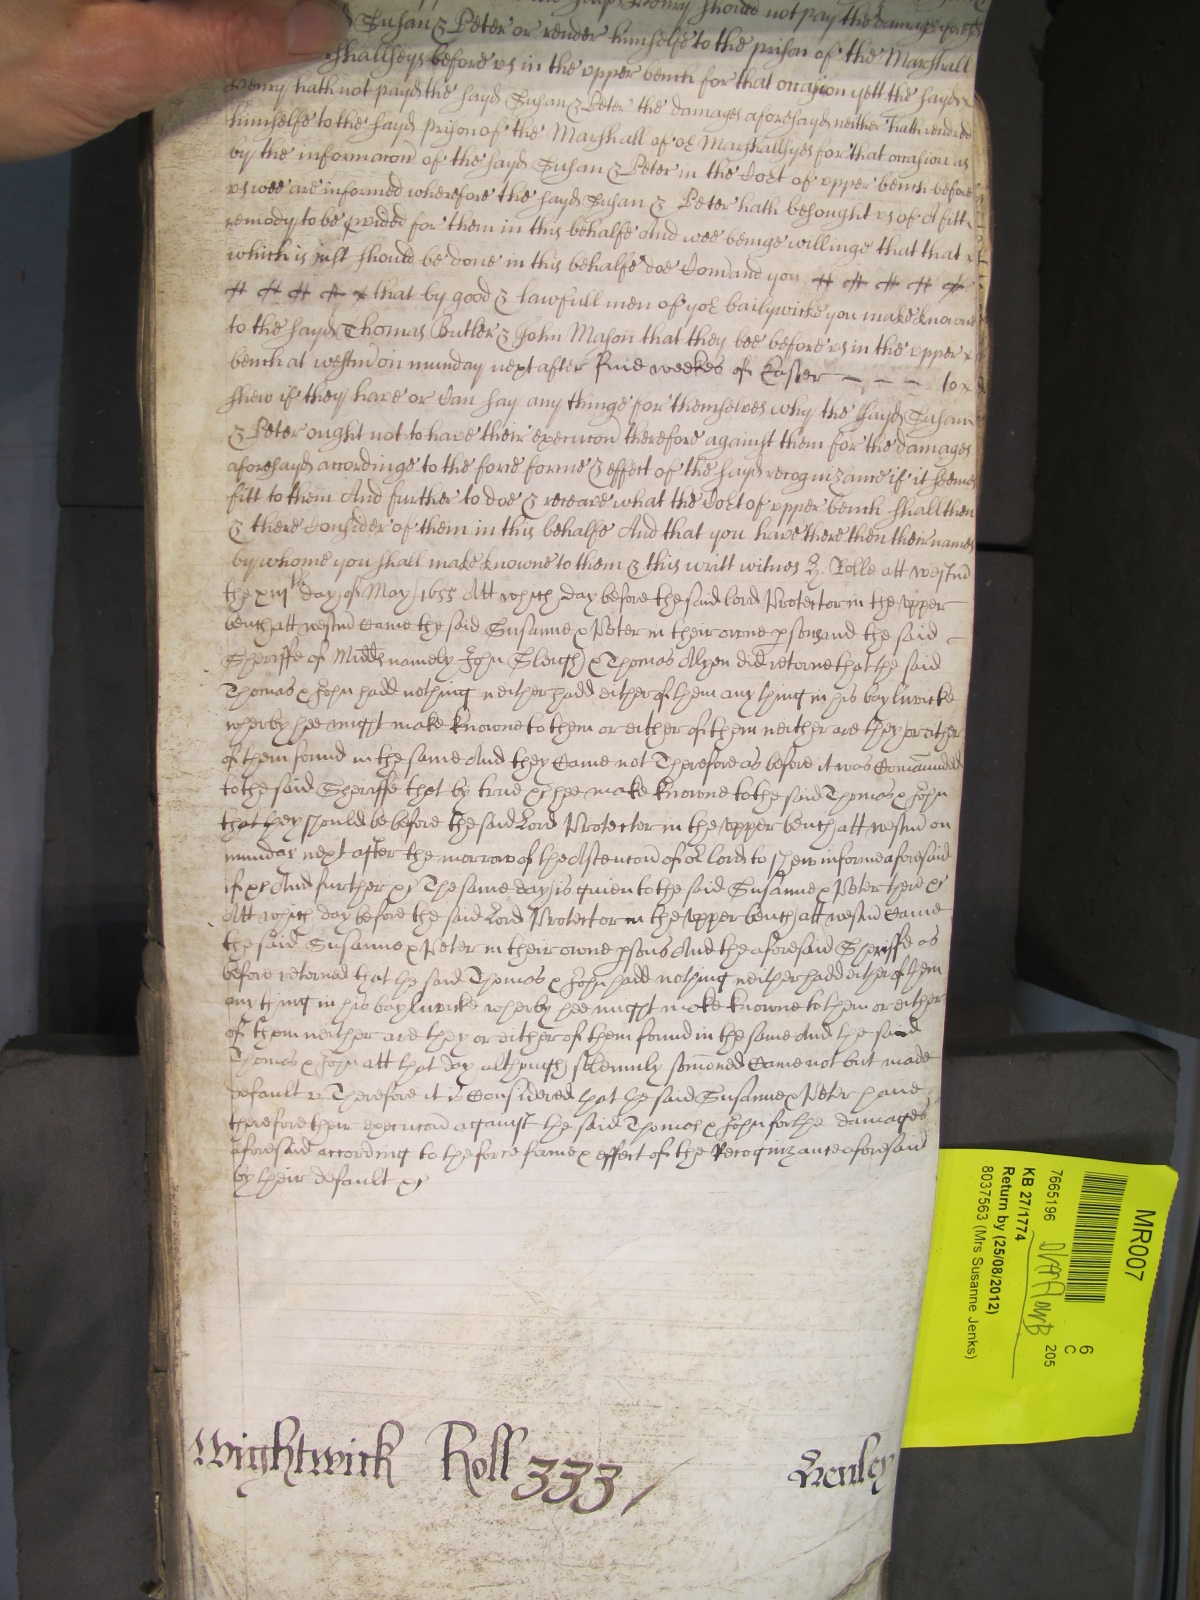 sayd Henry should not pay the damages aforesayd
Susan & Peter or render himselfe to the prison of the Marshall
Marshallseys before us in the upper bench for that occasion yett the sayd
Henry hath not payd the sayd Susan & Peter the damages aforesayd neither hath rendred
himselfe to the sayd prison of the Marshall of or Marshallseyes for that occasion as
by the informacon of the sayd Susan & Peter in the Cort of upper bench before
us wee are informed wherefore the sayd Susan & Peter hath besought us of A fitt
remedy to be pvided for them in this behalfe And wee beinge willinge that that
which is just should be done in this behalfe doe Comand you # # # # #
# # # # that by good & lawfull men of yor bailywicke you make knowne
to the sayd Thomas Butler & John Mason that they bee before us in the upper
bench at westm on munday next after five weekes of Easter - - - - to
shew if they have or Can say any thinge for themselves why the sayd Susan
& Peter ought not to have their execucon therefore against them for the damages
aforesayd accordinge to the force forme & effect of the sayd recognizance if it seeme
fitt to them And further to doe & receave what the Cort of upper bench shall then
& there Consider of them in this behalfe And that you have there then their names
by whome you shall make knowne to them & this writt witnes H. Rolle att westm
the day of May 1655 Att which day before the said lord Protector in the upper
bench att westm Came the said Susanne & Peter in their owne psons and the said
Sheriffe of Midds namely John & Thomas Alyen did retorne that the said
Thomas & John hadd nothing neither hadd either of them any thing in his baylywicke
wherby hee might make knowne to them or either of them neither are they or either
of them found in the same And they Came not Therefore as before it was Comaunded
to the said Sheriffe that by true &c hee make knowne to the said Thomas & John
that they should be before the said Lord Protector in the upper bench att westm on
munday next after the morrow of the Ascencon of or lord to shew in forme aforesaid
if &c And further &c The same day is given to the said Susanne & Peter there &c
Att which day before the said Lord Protector in the upper bench att westm Came
the said Susanne & Peter in their owne psons And the aforesaid Sheriffe as
before retorned that the said Thomas & John hadd nothing neither hadd either of them
any thing in his baylywicke wherby hee might make knowne to them or either
of them neither are they or either of them found in the same And the said
Thomas & John att that day although solemnly somoned Came not but made
default Therefore it is Considered that the said Susanne & Peter have
therefore their execucon against the said Thomas & John for the damages
aforesaid according to the force forme & effect of the Recognizance aforesaid
by their default &c
Wightwick Roll 333 /
Henley
MR007
6
C
205
7665196
KB 27/1774
Return by (25/08/2012)
8037563 (Mrs Susanne Jenks)